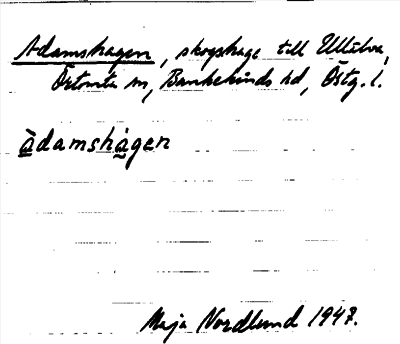 Adamshagen, skogshage till Ullälva,
Örtomta sn, Bankekinds hd, Östg. l.
àdamshàgen
Maja Nordlund 1947.